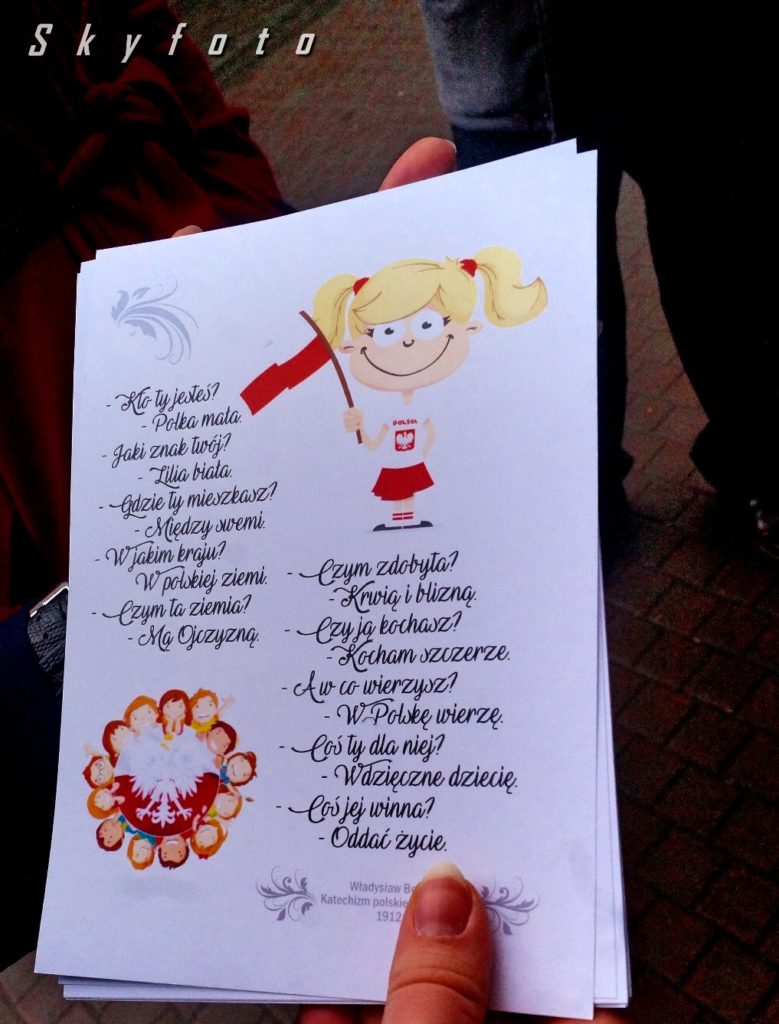 Skyfoto
POLSKA
- Kto ty jesteś?
- Polka mała.
- Jaki znak twój?
- Lilia biała.
- Gdzie ty mieszkasz?
- Między swemi.
- W jakim kraju?
W polskiej ziemi.
- Czym ta ziemia?
- Mą Ojczyzną.
- Czym zdobyta?
- Krwią i blizną.
- Czy ją kochasz?
- Kocham szczerze.
- A w co wierzysz?
- W Polskę wierzę.
- Coś ty dla niej?
- Wdzięczne dziecię.
- Coś jej winna?
- Oddać życie.
Władysław
Katechizm
1912